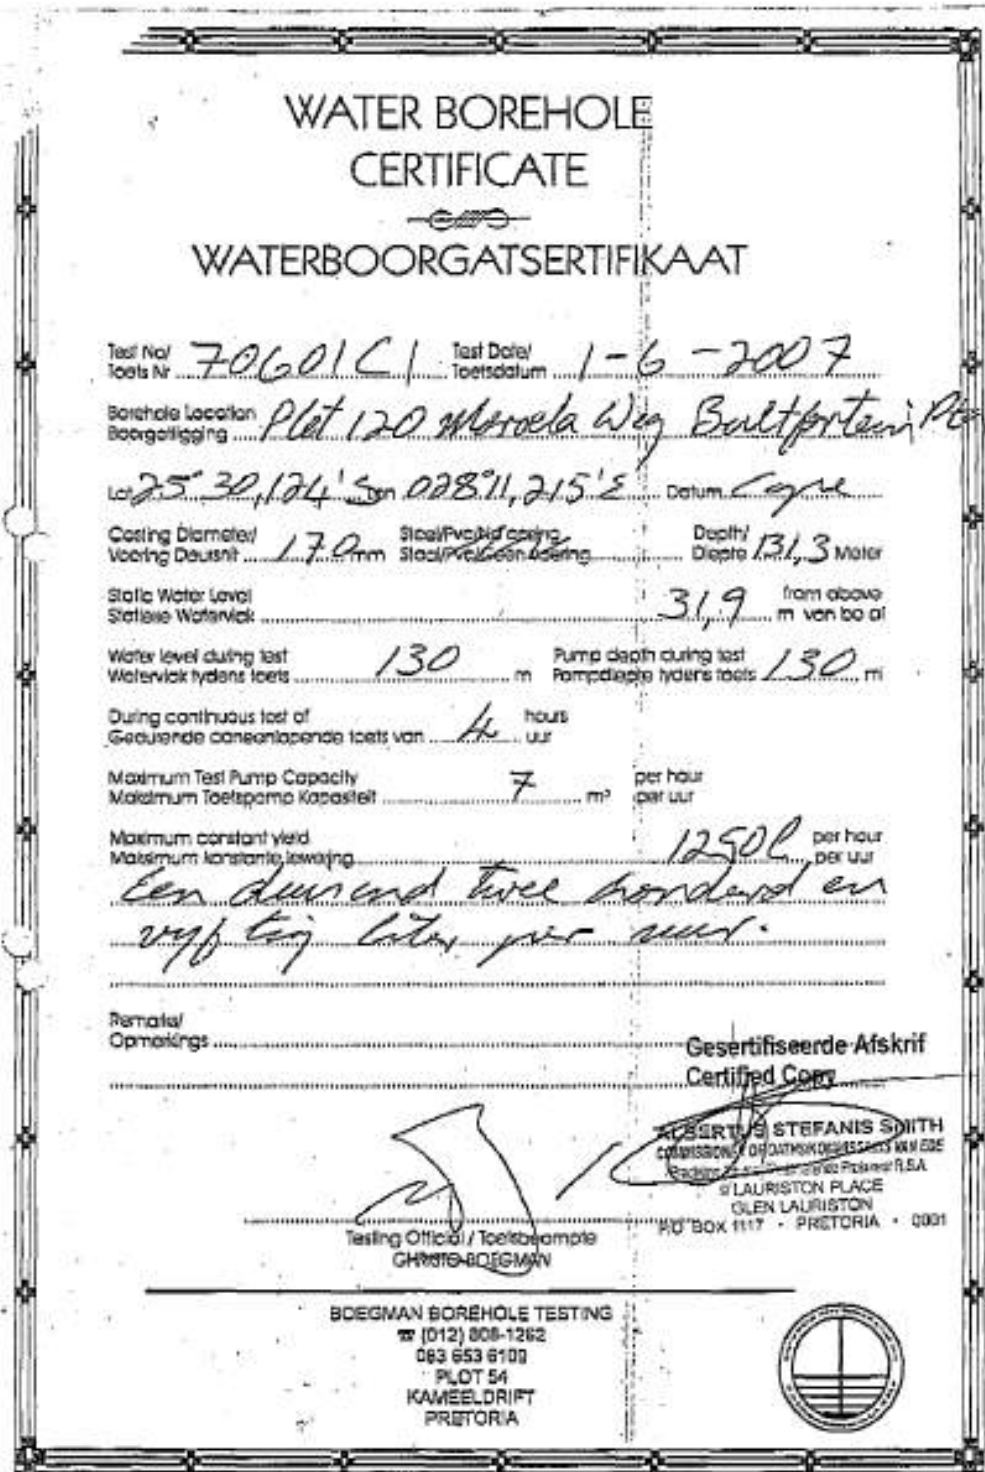 WATER BOREHOLE
CERTIFICATE
WATERBOORGATSERTIFIKAAT
Test No/ Toets Nr 70601C1 Test Date/ Toetsdatum 1-6-2007
Borehole Location
Boorgatligging Plot 120 Maroela Weg Bultfontein Pta
Lat 25° 30,124' S Lon 028° 11,215' E Datum Cape
Casing Diameter/ Voering Deursnit 170 mm Steel/Pvc/No casing Staal/Pvc/Geen voering Depth/ Diepte 131,3 Meter
Static Water Level from above
Statiese Watervlak 31,9 m van bo af
Water level during test Pump depth during test
Watervlak tydens toets 130 m Pompdiepte tydens toets 130 m
During continuous test of hours
Gedurende aaneenlopende toets van 4 uur
Maximum Test Pump Capacity per hour
Maksimum Toetspomp Kapasiteit 7 m³ per uur
Maximum constant yield per hour
Maksimum konstante lewering 1250 l per uur
Een duisend twee honderd en
vyftig liter per uur.
Remarks/
Opmerkings
Gesertifiseerde Afskrif
Certified Copy
ALBERTUS STEFANIS SMITH
COMMISSIONER OF OATHS/KOMMISSARIS VAN EDE
R.S.A.
9 LAURISTON PLACE
GLEN LAURISTON
P.O BOX 1117 - PRETORIA - 0001
Testing Official / Toetsbeampte
CHRISTO BOEGMAN
BOEGMAN BOREHOLE TESTING
☎ (012) 808-1262
083 653 6109
PLOT 54
KAMEELDRIFT
PRETORIA